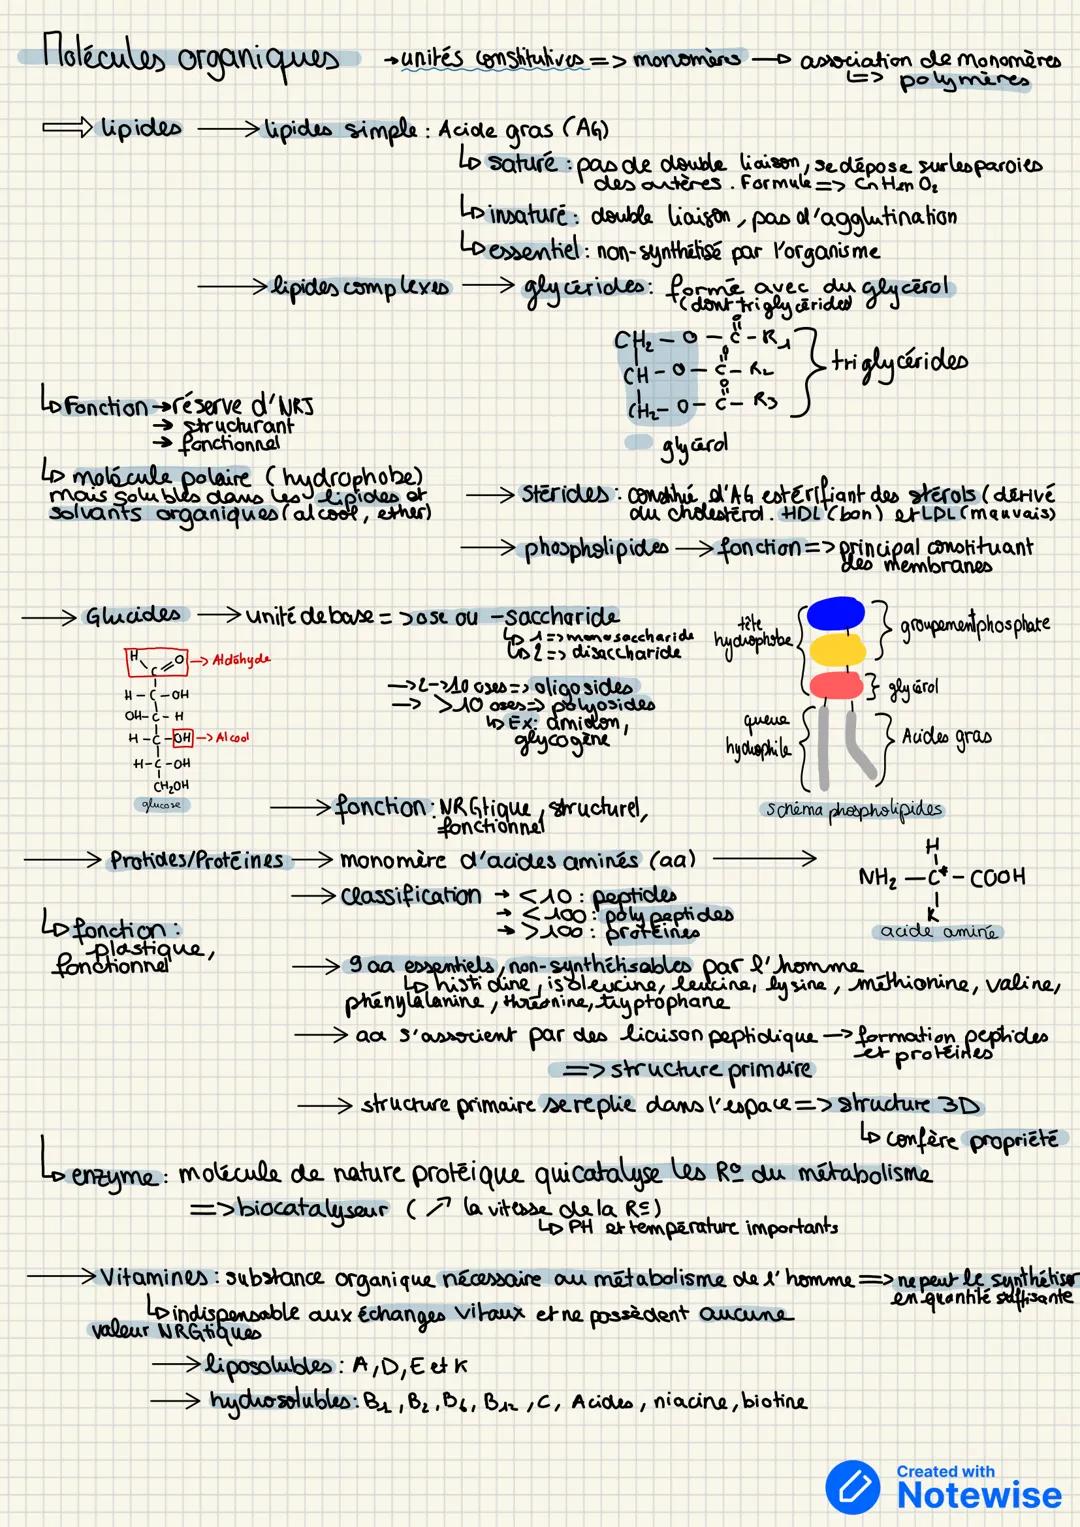 Molécules organiques → unités constitutives => monomères → association de monomères
=> polymères
=> lipides → lipides simple : Acide gras (AG)
↳ saturé : pas de double liaison, se dépose sur les paroies
des artères. Formule => CnH2nO2
↳ insaturé : double liaison, pas d'agglutination
↳ essentiel : non-synthétisé par l'organisme
→ lipides complexes → glycérides : formé avec du glycérol
(dont triglycérides)
CH2 - O - C - R1
O
CH - O - C - R2
O
CH2 - O - C - R3
O
triglycérides
glycérol
↳ Fonction → réserve d'NRJ
→ structurant
→ fonctionnel
↳ molécule polaire (hydrophobe)
mais solubles dans les lipides et
solvants organiques (alcool, ether)
→ Stérides : constitué d'AG estérifiant des stérols (dérivé
du cholestérol. HDL (bon) et LDL (mauvais)
→ phospholipides → fonction => principal constituant
des membranes
→ Glucides → unité de base => ose ou -saccharide
↳ 1 => monosaccharide
↳ 2 => disaccharide
→ 2->10 oses => oligosides
→ >10 oses => polyosides
↳ Ex: amidon,
glycogène
H
C
O → Aldéhyde
H - C - OH
OH - C - H
H - C - OH → Alcool
H - C - OH
CH2OH
glucose
tête
hydrophobe
groupement phosphate
glycérol
queue
hydrophile
Acides gras
schéma phospholipides
→ fonction : NRGtique, structurel,
fonctionnel
→ Protides/Protéines → monomère d'acides aminés (aa) →
H
NH2 - C* - COOH
R
acide aminé
→ classification → <10 : peptides
→ <100 : polypeptides
→ >100 : protéines
↳ fonction :
plastique,
fonctionnel
→ 9 aa essentiels, non-synthétisables par l'homme
↳ histidine, isoleucine, leucine, lysine, méthionine, valine,
phénylalanine, thréonine, tryptophane
→ aa s'associent par des liaison peptidique → formation peptides
et protéines
=> structure primaire
→ structure primaire se replie dans l'espace => structure 3D
↳ confère propriété
↳ enzyme : molécule de nature protéique qui catalyse les R° du métabolisme
=> biocatalyseur (↗ la vitesse de la R°)
↳ PH et température importants
→ Vitamines : substance organique nécessaire au métabolisme de l'homme => ne peut le synthétiser
en quantité suffisante
↳ indispensable aux échanges vitaux et ne possèdent aucune
valeur NRGtiques
→ liposolubles : A, D, E et K
→ hydrosolubles : B1, B2, B6, B12, C, Acides, niacine, biotine
Created with
Notewise